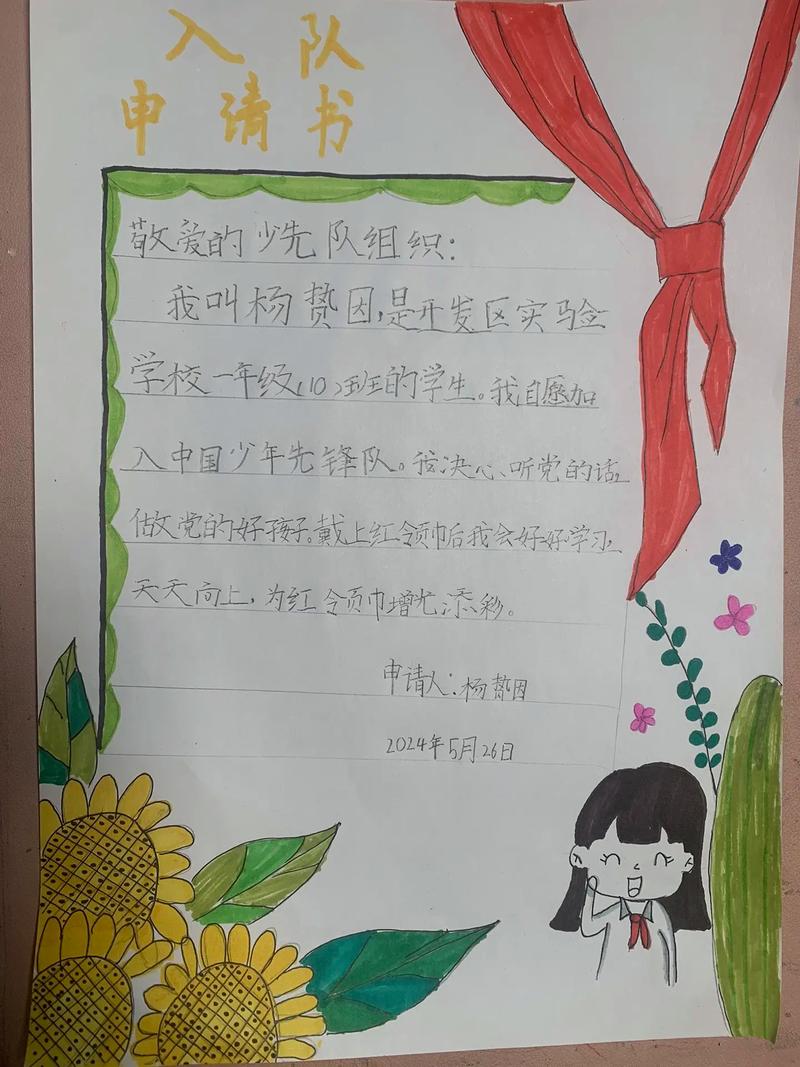 入队
申请书
敬爱的少先队组织：
我叫杨贽因，是开发区实验
学校一年级（10）班的学生。我自愿加
入中国少年先锋队。我决心、听党的话，
做党的好孩子。戴上红领巾后我会好好学习，
天天向上，为红领巾增光添彩。
申请人：杨贽因
2024年5月26日